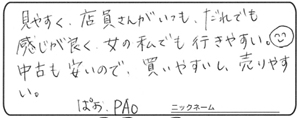 見やすく、店員さんがいつも、だれでも
感じが良く、女の私でも行きやすい。
中古も安いので、買いやすいし、売りやす
い。
ぱお.PAO ニックネーム